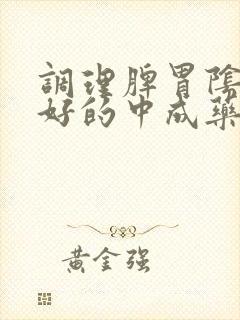 調理脾胃陰
好的中成藥
黄金强